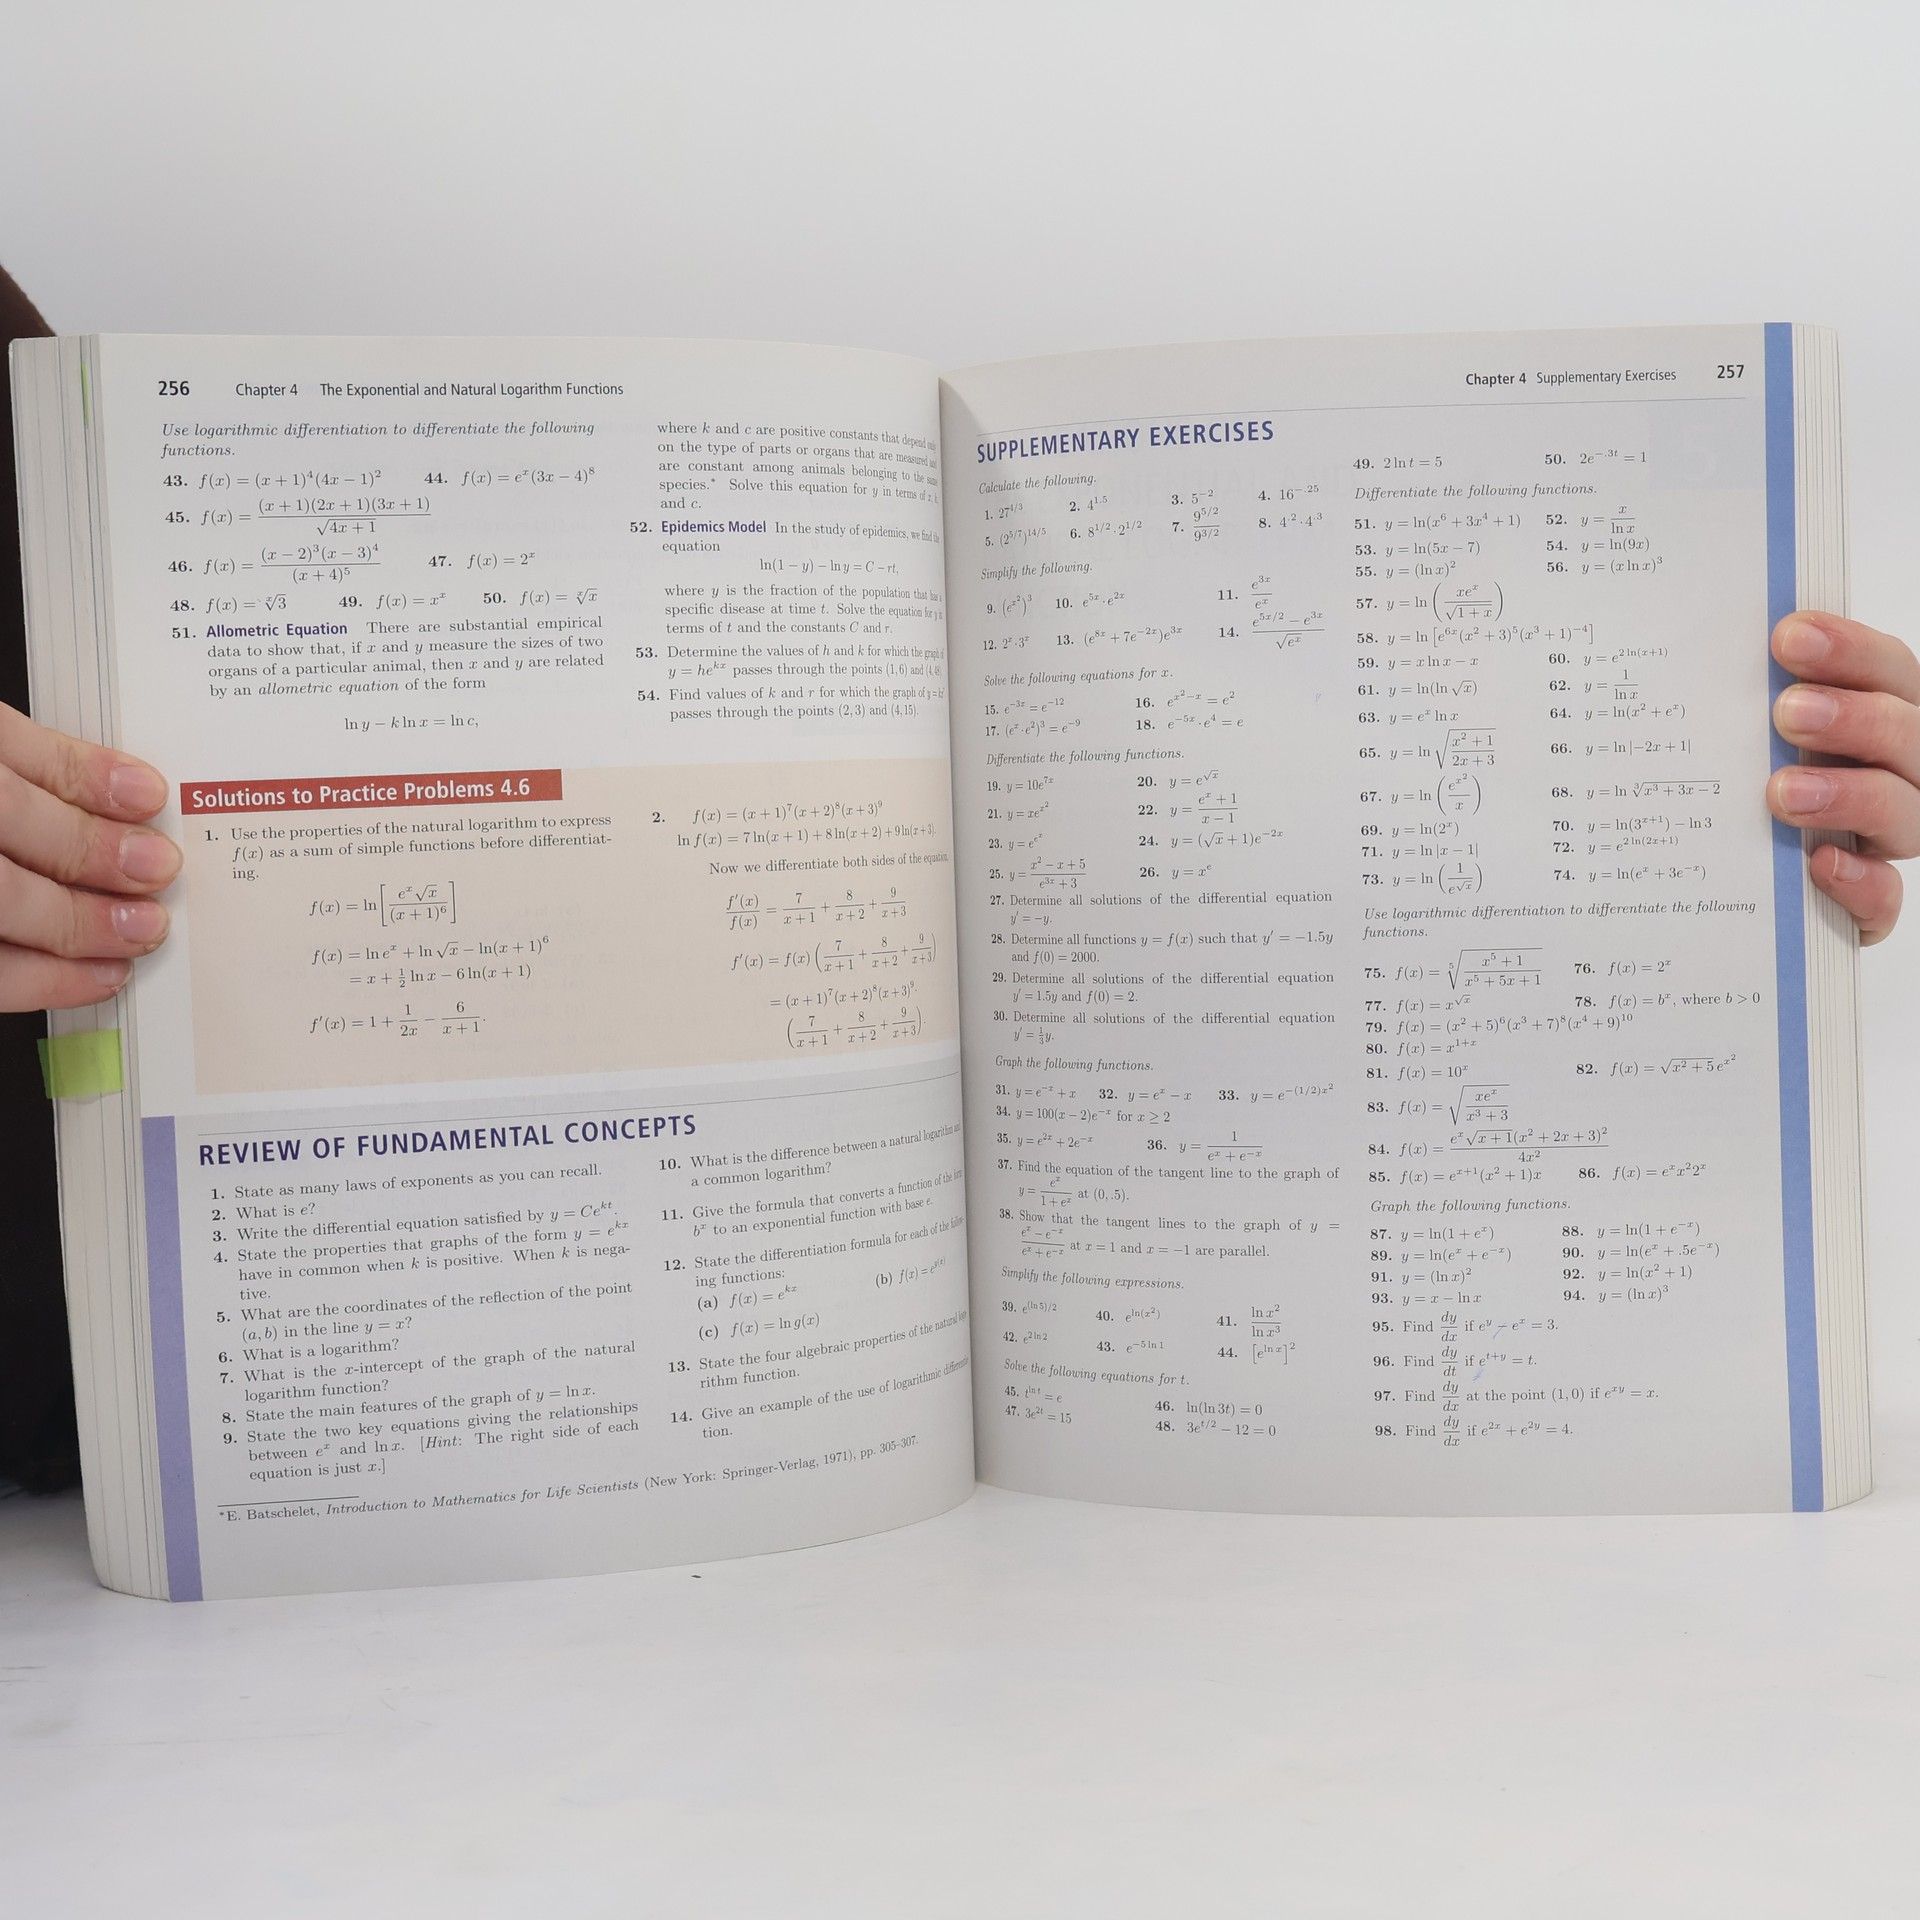 256 Chapter 4 The Exponential and Natural Logarithm Functions
Use logarithmic differentiation to differentiate the following
functions.
43. f(x) = (x + 1)⁴(4x − 1)² 44. f(x) = eˣ(3x − 4)⁸
45. f(x) = (x + 1)(2x + 1)(3x + 1) / √(4x + 1)
46. f(x) = (x − 2)³(x − 3)⁴ / (x + 4)⁵ 47. f(x) = 2ˣ
48. f(x) = ˣ√3 49. f(x) = xˣ 50. f(x) = ˣ√x
51. Allometric Equation There are substantial empirical
data to show that, if x and y measure the sizes of two
organs of a particular animal, then x and y are related
by an allometric equation of the form
ln y − k ln x = ln c,
where k and c are positive constants that depend only
on the type of parts or organs that are measured and
are constant among animals belonging to the same
species.* Solve this equation for y in terms of x, k,
and c.
52. Epidemics Model In the study of epidemics, we find the
equation
ln(1 − y) − ln y = C − rt,
where y is the fraction of the population that has a
specific disease at time t. Solve the equation for y in
terms of t and the constants C and r.
53. Determine the values of h and k for which the graph of
y = heᵏˣ passes through the points (1, 6) and (4, 48).
54. Find values of k and r for which the graph of y =
passes through the points (2, 3) and (4, 15).
Solutions to Practice Problems 4.6
1. Use the properties of the natural logarithm to express
f(x) as a sum of simple functions before differentiat-
ing.
f(x) = ln[eˣ√x / (x + 1)⁶]
f(x) = ln eˣ + ln √x − ln(x + 1)⁶
= x + ½ ln x − 6 ln(x + 1)
f′(x) = 1 + 1/2x − 6/(x + 1).
2. f(x) = (x + 1)⁷(x + 2)⁸(x + 3)⁹
ln f(x) = 7 ln(x + 1) + 8 ln(x + 2) + 9 ln(x + 3).
Now we differentiate both sides of the equation.
f′(x)/f(x) = 7/(x + 1) + 8/(x + 2) + 9/(x + 3)
f′(x) = f(x) (7/(x + 1) + 8/(x + 2) + 9/(x + 3))
= (x + 1)⁷(x + 2)⁸(x + 3)⁹·
(7/(x + 1) + 8/(x + 2) + 9/(x + 3)).
REVIEW OF FUNDAMENTAL CONCEPTS
1. State as many laws of exponents as you can recall.
2. What is e?
3. Write the differential equation satisfied by y = Ceᵏᵗ.
4. State the properties that graphs of the form y = eᵏˣ
have in common when k is positive. When k is nega-
tive.
5. What are the coordinates of the reflection of the point
(a, b) in the line y = x?
6. What is a logarithm?
7. What is the x-intercept of the graph of the natural
logarithm function?
8. State the main features of the graph of y = ln x.
9. State the two key equations giving the relationships
between eˣ and ln x. [Hint: The right side of each
equation is just x.]
10. What is the difference between a natural logarithm and
a common logarithm?
11. Give the formula that converts a function of the form
bˣ to an exponential function with base e.
12. State the differentiation formula for each of the follow-
ing functions:
(a) f(x) = eᵏˣ (b) f(x) = e^(g(x))
(c) f(x) = ln g(x)
13. State the four algebraic properties of the natural loga-
rithm function.
14. Give an example of the use of logarithmic differentia-
tion.
*E. Batschelet, Introduction to Mathematics for Life Scientists (New York: Springer-Verlag, 1971), pp. 305–307.
Chapter 4 Supplementary Exercises 257
SUPPLEMENTARY EXERCISES
Calculate the following.
1. 27^(4/3) 2. 4^(1.5) 3. 5⁻² 4. 16^(−.25)
5. (2^(5/7))^(14/5) 6. 8^(1/2) · 2^(1/2) 7. 9^(5/2) / 9^(3/2) 8. 4^(.2) · 4^(.3)
Simplify the following.
9. (e^(x²))³ 10. e^(5x) · e^(2x) 11. e^(3x) / eˣ
12. 2ˣ · 3ˣ 13. (e^(8x) + 7e^(−2x))e^(3x) 14. (e^(5x/2) − e^(3x)) / √(eˣ)
Solve the following equations for x.
15. e^(−3x) = e^(−12) 16. e^(x²−x) = e²
17. (eˣ · e²)³ = e⁻⁹ 18. e^(−5x) · e⁴ = e
Differentiate the following functions.
19. y = 10e^(7x) 20. y = e^(√x)
21. y = xe^(x²) 22. y = (eˣ + 1) / (x − 1)
23. y = e^(eˣ) 24. y = (√x + 1)e^(−2x)
25. y = (x² − x + 5) / (e^(3x) + 3) 26. y = xᵉ
27. Determine all solutions of the differential equation
y′ = −y.
28. Determine all functions y = f(x) such that y′ = −1.5y
and f(0) = 2000.
29. Determine all solutions of the differential equation
y′ = 1.5y and f(0) = 2.
30. Determine all solutions of the differential equation
y′ = ⅓y.
Graph the following functions.
31. y = e⁻ˣ + x 32. y = eˣ − x 33. y = e^(−(1/2)x²)
34. y = 100(x − 2)e⁻ˣ for x ≥ 2
35. y = e^(2x) + 2e⁻ˣ 36. y = 1 / (eˣ + e⁻ˣ)
37. Find the equation of the tangent line to the graph of
y = eˣ / (1 + eˣ) at (0, .5).
38. Show that the tangent lines to the graph of y =
(eˣ − e⁻ˣ) / (eˣ + e⁻ˣ) at x = 1 and x = −1 are parallel.
Simplify the following expressions.
39. e^((ln 5)/2) 40. e^(ln(x²)) 41. ln x² / ln x³
42. e^(2 ln 2) 43. e^(−5 ln 1) 44. [e^(ln x)]²
Solve the following equations for t.
45. t^(ln t) = e 46. ln(ln 3t) = 0
47. 3e^(2t) = 15 48. 3e^(t/2) − 12 = 0
49. 2 ln t = 5 50. 2e^(−.3t) = 1
Differentiate the following functions.
51. y = ln(x⁶ + 3x⁴ + 1) 52. y = x / ln x
53. y = ln(5x − 7) 54. y = ln(9x)
55. y = (ln x)² 56. y = (x ln x)³
57. y = ln(xeˣ / √(1 + x))
58. y = ln [e^(6x)(x² + 3)⁵(x³ + 1)⁻⁴]
59. y = x ln x − x 60. y = e^(2 ln(x+1))
61. y = ln(ln √x) 62. y = 1 / ln x
63. y = eˣ ln x 64. y = ln(x² + eˣ)
65. y = ln √((x² + 1) / (2x + 3)) 66. y = ln |−2x + 1|
67. y = ln(e^(x²) / x) 68. y = ln ³√(x³ + 3x − 2)
69. y = ln(2ˣ) 70. y = ln(3^(x+1)) − ln 3
71. y = ln |x − 1| 72. y = e^(2 ln(2x+1))
73. y = ln(1 / e^(√x)) 74. y = ln(eˣ + 3e⁻ˣ)
Use logarithmic differentiation to differentiate the following
functions.
75. f(x) = ⁵√((x⁵ + 1) / (x⁵ + 5x + 1)) 76. f(x) = 2ˣ
77. f(x) = x^(√x) 78. f(x) = bˣ, where b > 0
79. f(x) = (x² + 5)⁶(x³ + 7)⁸(x⁴ + 9)¹⁰
80. f(x) = x^(1+x)
81. f(x) = 10ˣ 82. f(x) = √(x² + 5) e^(x²)
83. f(x) = √(xeˣ / (x³ + 3))
84. f(x) = eˣ√(x + 1)(x² + 2x + 3)² / 4x²
85. f(x) = e^(x+1)(x² + 1)x 86. f(x) = eˣx²2ˣ
Graph the following functions.
87. y = ln(1 + eˣ) 88. y = ln(1 + e⁻ˣ)
89. y = ln(eˣ + e⁻ˣ) 90. y = ln(eˣ + .5e⁻ˣ)
91. y = (ln x)² 92. y = ln(x² + 1)
93. y = x − ln x 94. y = (ln x)³
95. Find dy/dx if eʸ − eˣ = 3.
96. Find dy/dt if e^(t+y) = t.
97. Find dy/dx at the point (1, 0) if e^(xy) = x.
98. Find dy/dx if e^(2x) + e^(2y) = 4.